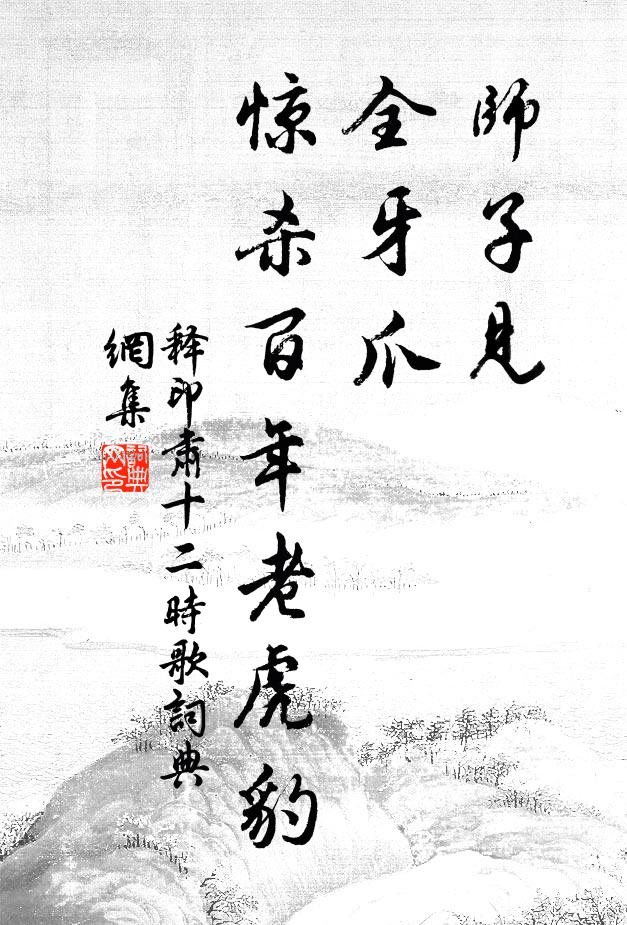 師子見
全牙爪
惊杀百年老虎豹
释印肃十二時歌詞典
網集
詞典
网印